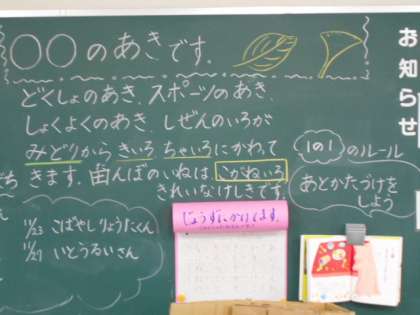 ○○のあきです.
どくしょのあき、スポーツのあき、
しょくよくのあき、しぜんのいろが
みどりからきいろちゃいろにかわって
きます. 田んぼのいねは、こがねいろ
きれいなけしきです.
お知らせ
1の1のルール
あとかたづけを
しよう
11/23 こばやしりょうたくん
11/27 いとうるいさん
じょうずにかけてます.